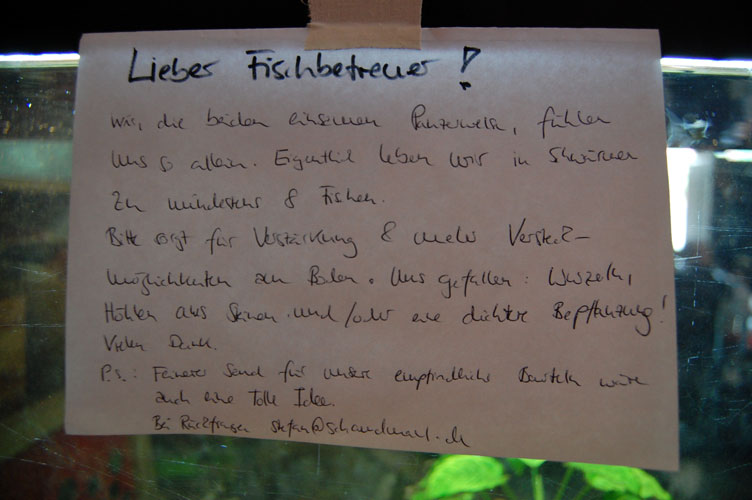 Lieber Fischbetreuer!
wir, die beiden einsamen Panzerwelse, fühlen
uns so allein. Eigentlich leben wir in Schwärmen
zu mindestens 8 Fischen.
Bitte sorgt für Verstärkung & mehr Versteck-
möglichkeiten am Boden. Uns gefallen: Wurzeln,
Höhlen aus Steinen und/oder eine dichte Bepflanzung!
Vielen Dank.
P.s.: Feinerer Sand für unsere empfindlichen Barteln wäre
auch eine Tolle Idee.
Bei Rückfragen